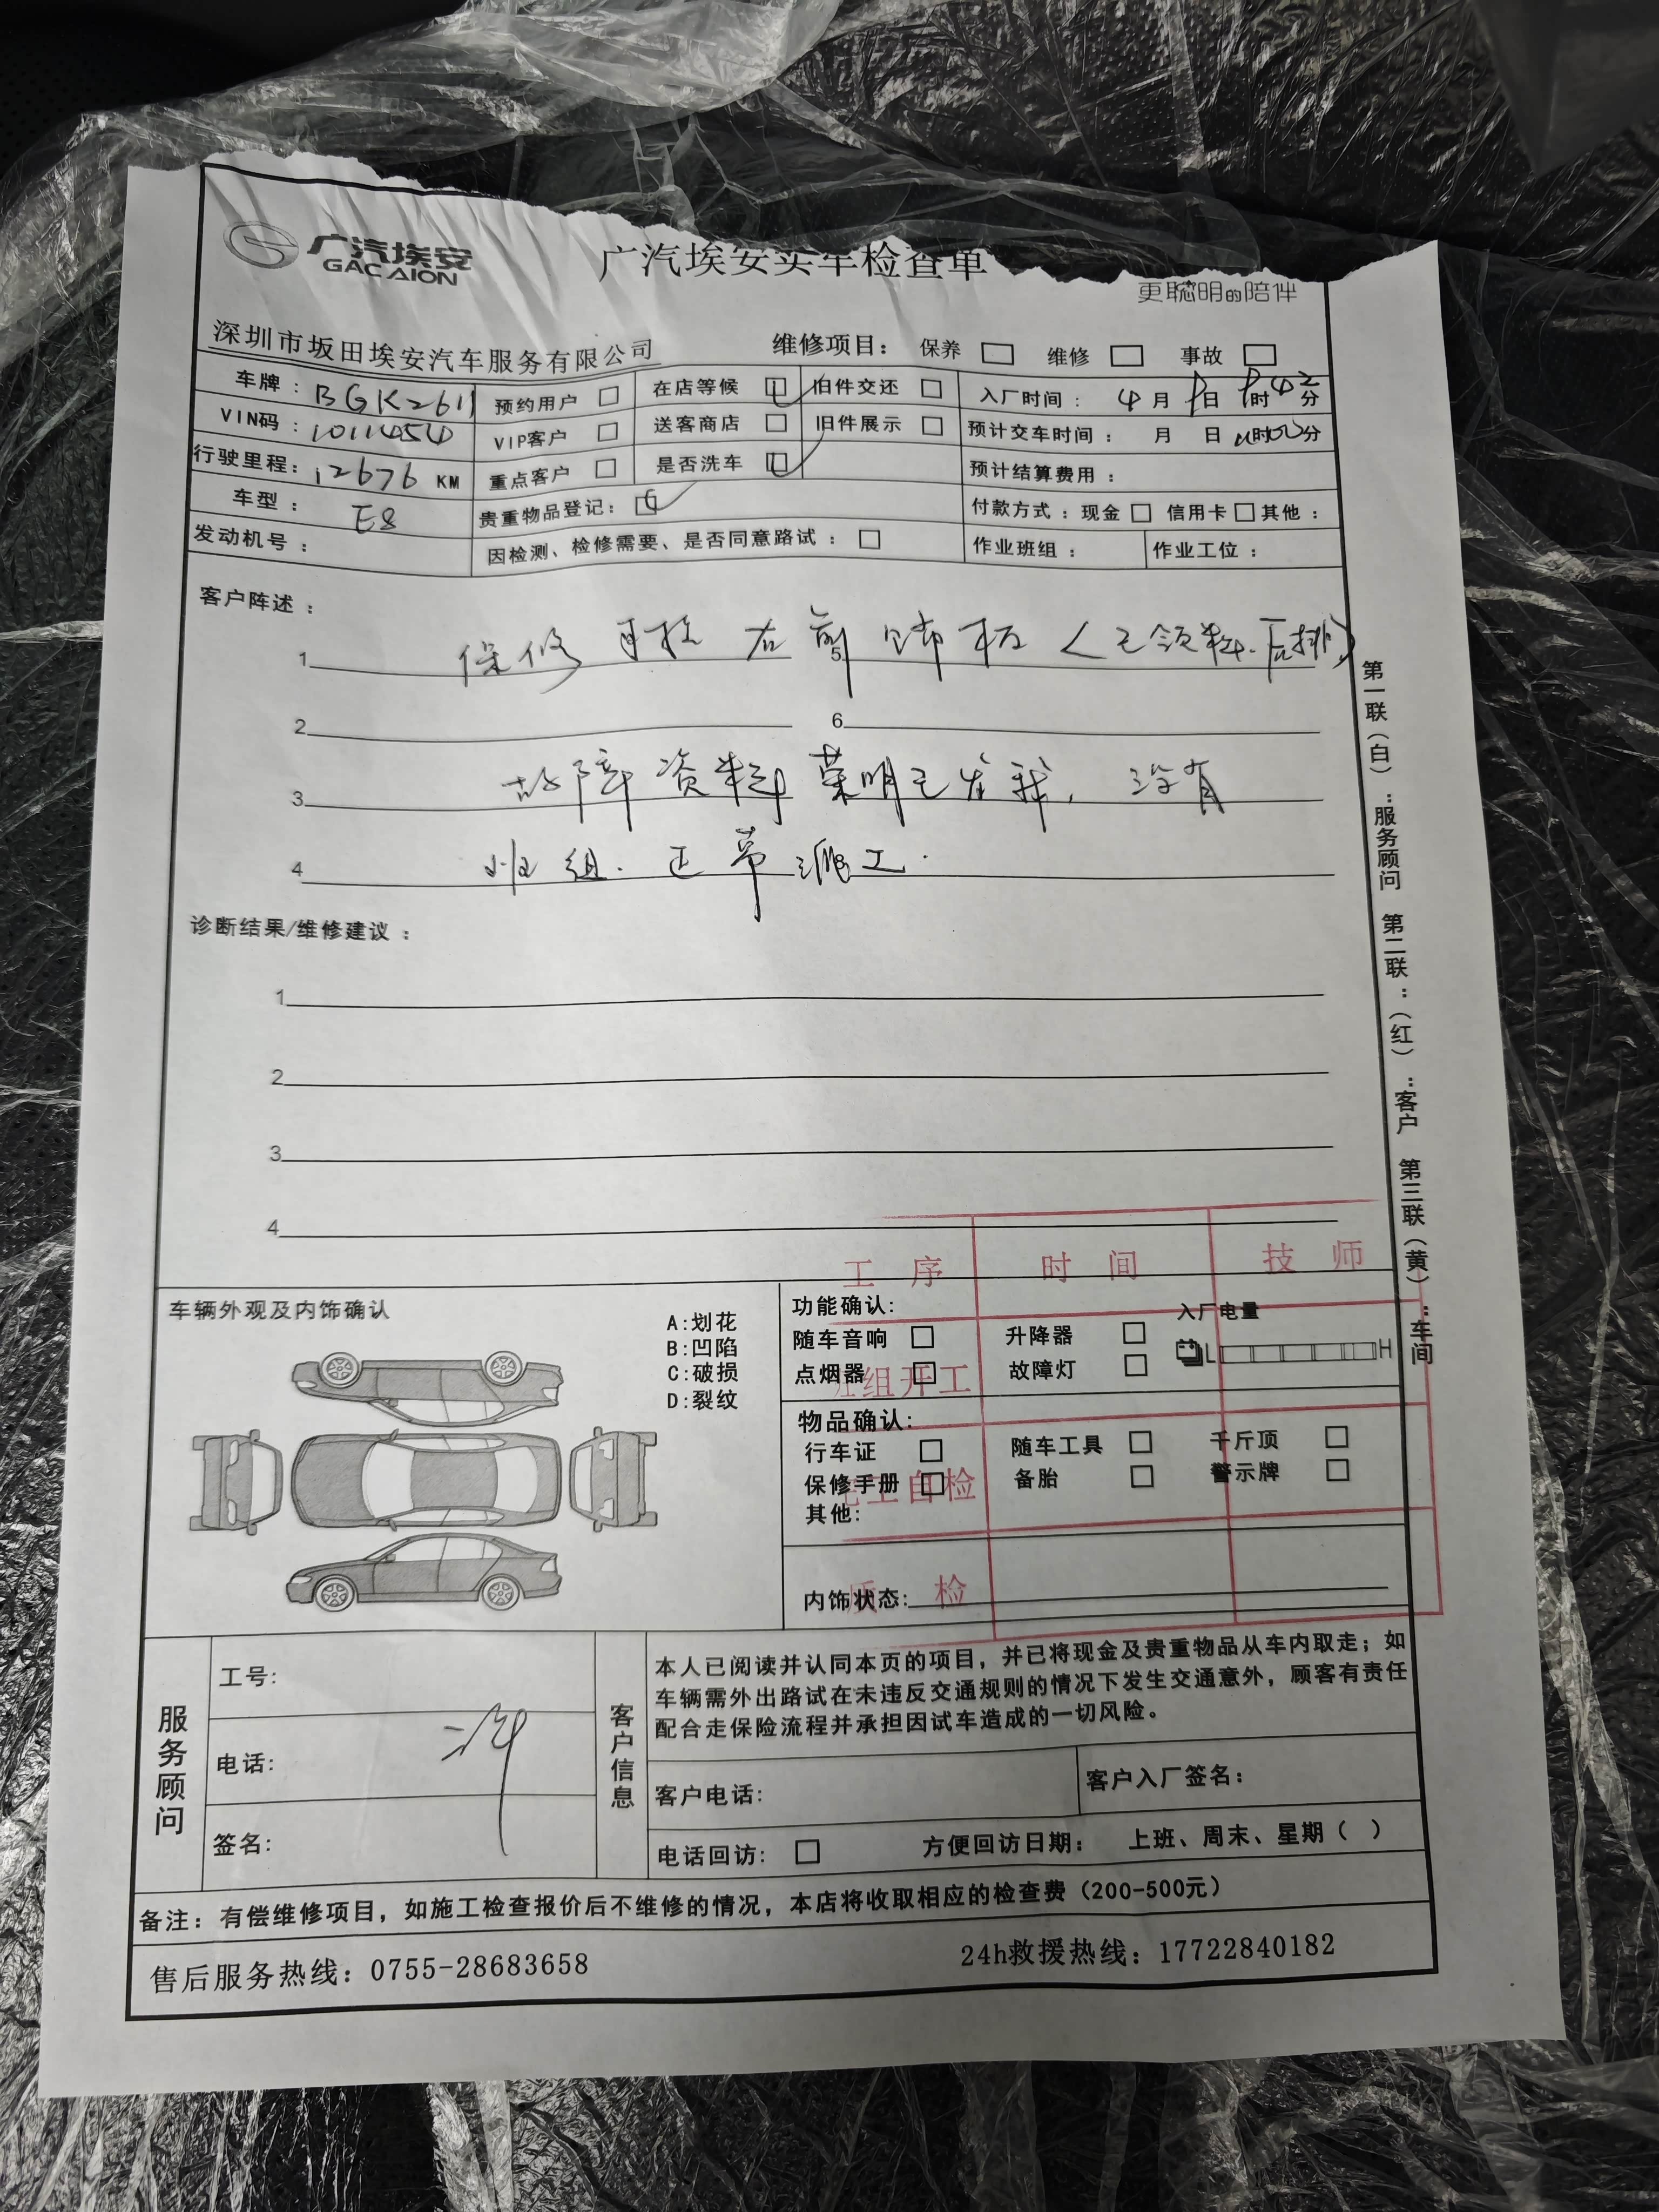 广汽埃安
GAC AION
广汽埃安实车检查单
更聪明的陪伴
深圳市坂田埃安汽车服务有限公司
维修项目： 保养 □ 维修 □ 事故 □
车牌： BGK2611 预约用户 □ 在店等候 □ 旧件交还 □ 入厂时间： 4 月 日 时 42 分
VIN码： 1011454 VIP客户 □ 送客商店 □ 旧件展示 □ 预计交车时间： 月 日 时 分
行驶里程： 12676 KM 重点客户 □ 是否洗车 □ 预计结算费用：
车型： E8 贵重物品登记： □ 付款方式：现金 □ 信用卡 □ 其他：
发动机号： 因检测、检修需要、是否同意路试： □ 作业班组： 作业工位：
客户阵述：
1 保修 右前饰板 (已领料.后排)
5
2
6
3 故障资料荣明已发我, 没有
4 班组. 正常施工.
诊断结果/维修建议：
1
2
3
4
工序 时间 技师
班组开工
完工自检
质检
车辆外观及内饰确认
A:划花
B:凹陷
C:破损
D:裂纹
功能确认:
随车音响 □ 升降器 □ 入厂电量
点烟器 □ 故障灯 □ L H
物品确认:
行车证 □ 随车工具 □ 千斤顶 □
保修手册 □ 备胎 □ 警示牌 □
其他:
内饰状态:
服务顾问
工号:
电话:
签名:
客户信息
本人已阅读并认同本页的项目，并已将现金及贵重物品从车内取走；如
车辆需外出路试在未违反交通规则的情况下发生交通意外，顾客有责任
配合走保险流程并承担因试车造成的一切风险。
客户电话: 客户入厂签名：
电话回访: □ 方便回访日期： 上班、周末、星期（ ）
备注：有偿维修项目，如施工检查报价后不维修的情况，本店将收取相应的检查费（200-500元）
售后服务热线：0755-28683658 24h救援热线：17722840182
第一联（白）：服务顾问 第二联：（红）：客户 第三联（黄）：车间